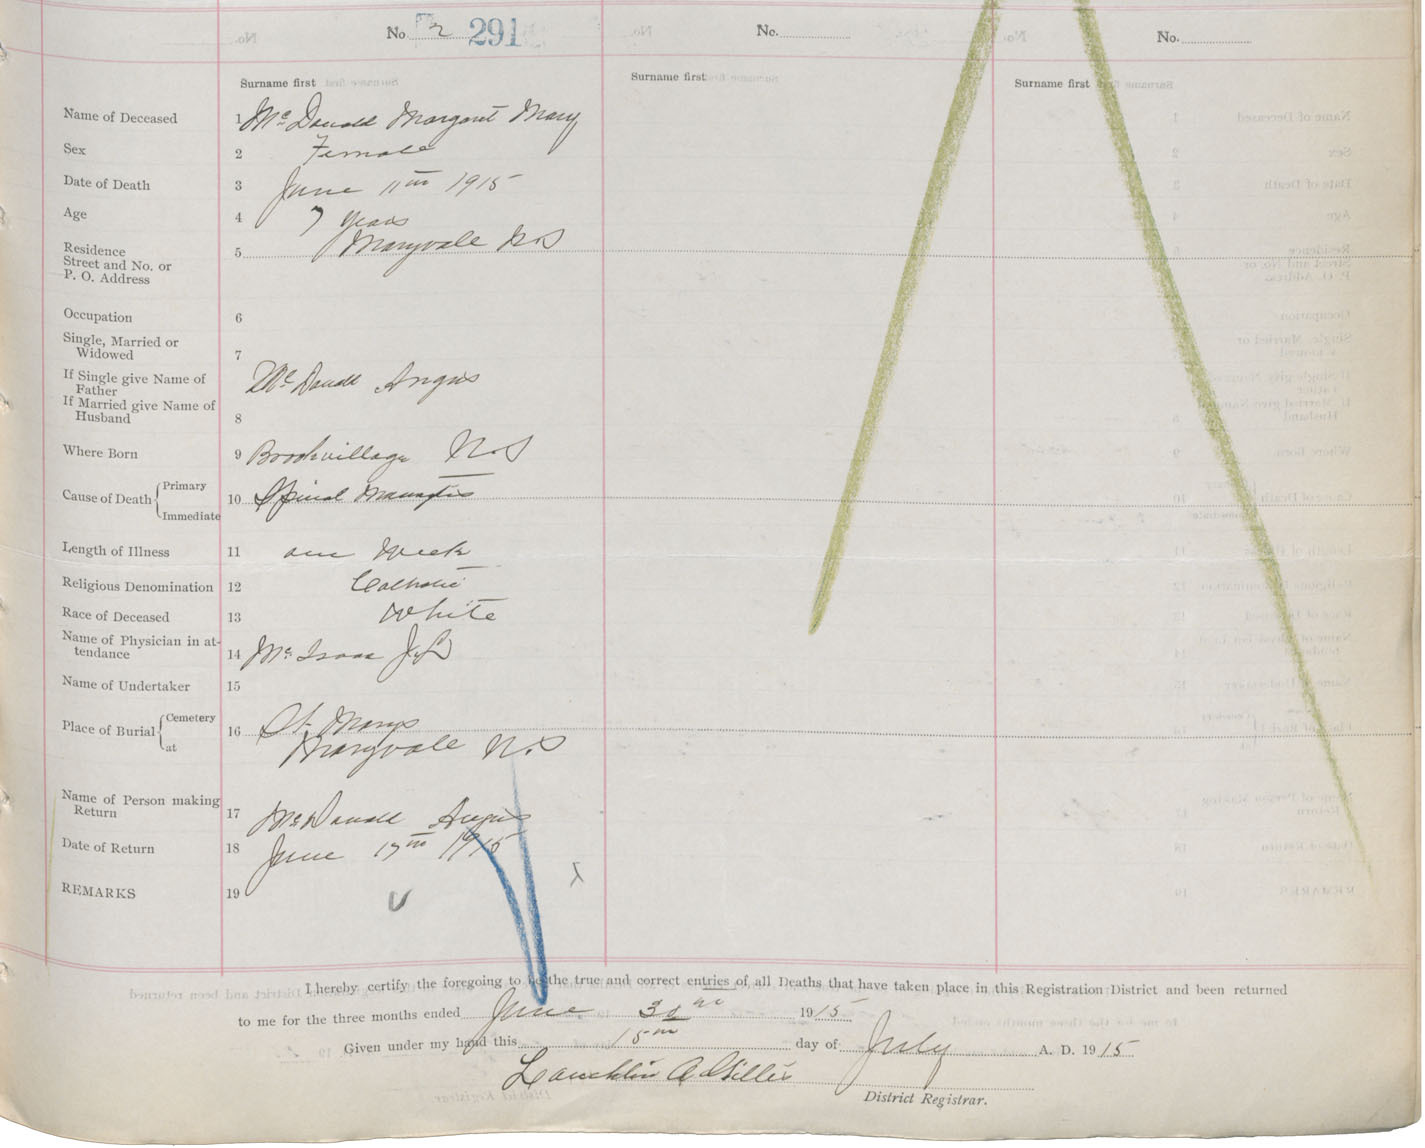 No. 2 291
No.
No.
Surname first
Surname first
Surname first
Name of Deceased 1 McDonald Margaret Mary
Sex 2 Female
Date of Death 3 June 11th 1915
Age 4 7 years
Residence
Street and No. or
P. O. Address 5 Maryvale N.S
Occupation 6
Single, Married or
Widowed 7
If Single give Name of
Father McDonald Angus
If Married give Name of
Husband 8
Where Born 9 Brookvillage N.S
Cause of Death Primary
Immediate 10 Spinal
Length of Illness 11 one Week
Religious Denomination 12 Catholic
Race of Deceased 13 White
Name of Physician in at-
tendance 14 McIsaac J.L
Name of Undertaker 15
Place of Burial Cemetery
at 16 St. Marys
Maryvale N.S
Name of Person making
Return 17 McDonald Angus
Date of Return 18 June 17th 1915
REMARKS 19
I hereby certify the foregoing to be the true and correct entries of all Deaths that have taken place in this Registration District and been returned
to me for the three months ended June 30th 1915
Given under my hand this 15th day of July A. D. 1915
Lauchlin A Gillis
District Registrar.